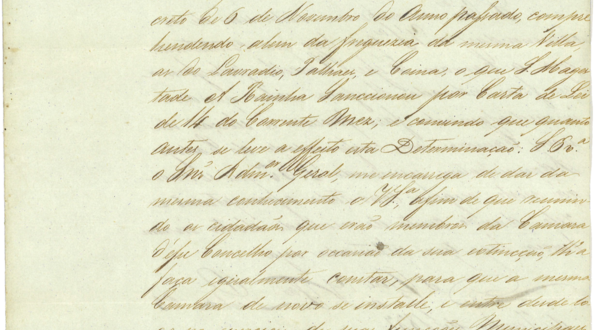 creto de 6 de Novembro do Anno passado, compre
hendendo, alem da freguezia da mesma Villa
as do Lavradio, Palhaes, e Coina, o que S. Mages
tade A Rainha Sanccionou por Carta de Lei
de 14 do Corrente Mez, e convindo que quanto
antes, se leve a effeito esta Determinação: S. Ex.ª
o Snr. Admor. Geral, me encarrega de dar da
mesma conhecimento a V. S.ª, afim de que reunin
do os cidadãos que erão membros da Camara
d'esse Concelho por occasião da sua extincção, lh'a
faça igualmente constar, para que a mesma
Camara de novo se installe, e entre desde lo
go no exercicio de suas funcções Municipaes